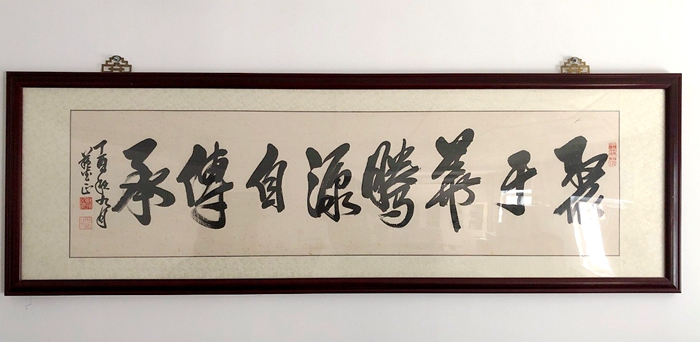 聚于華騰源自傳承
丁酉秋九月